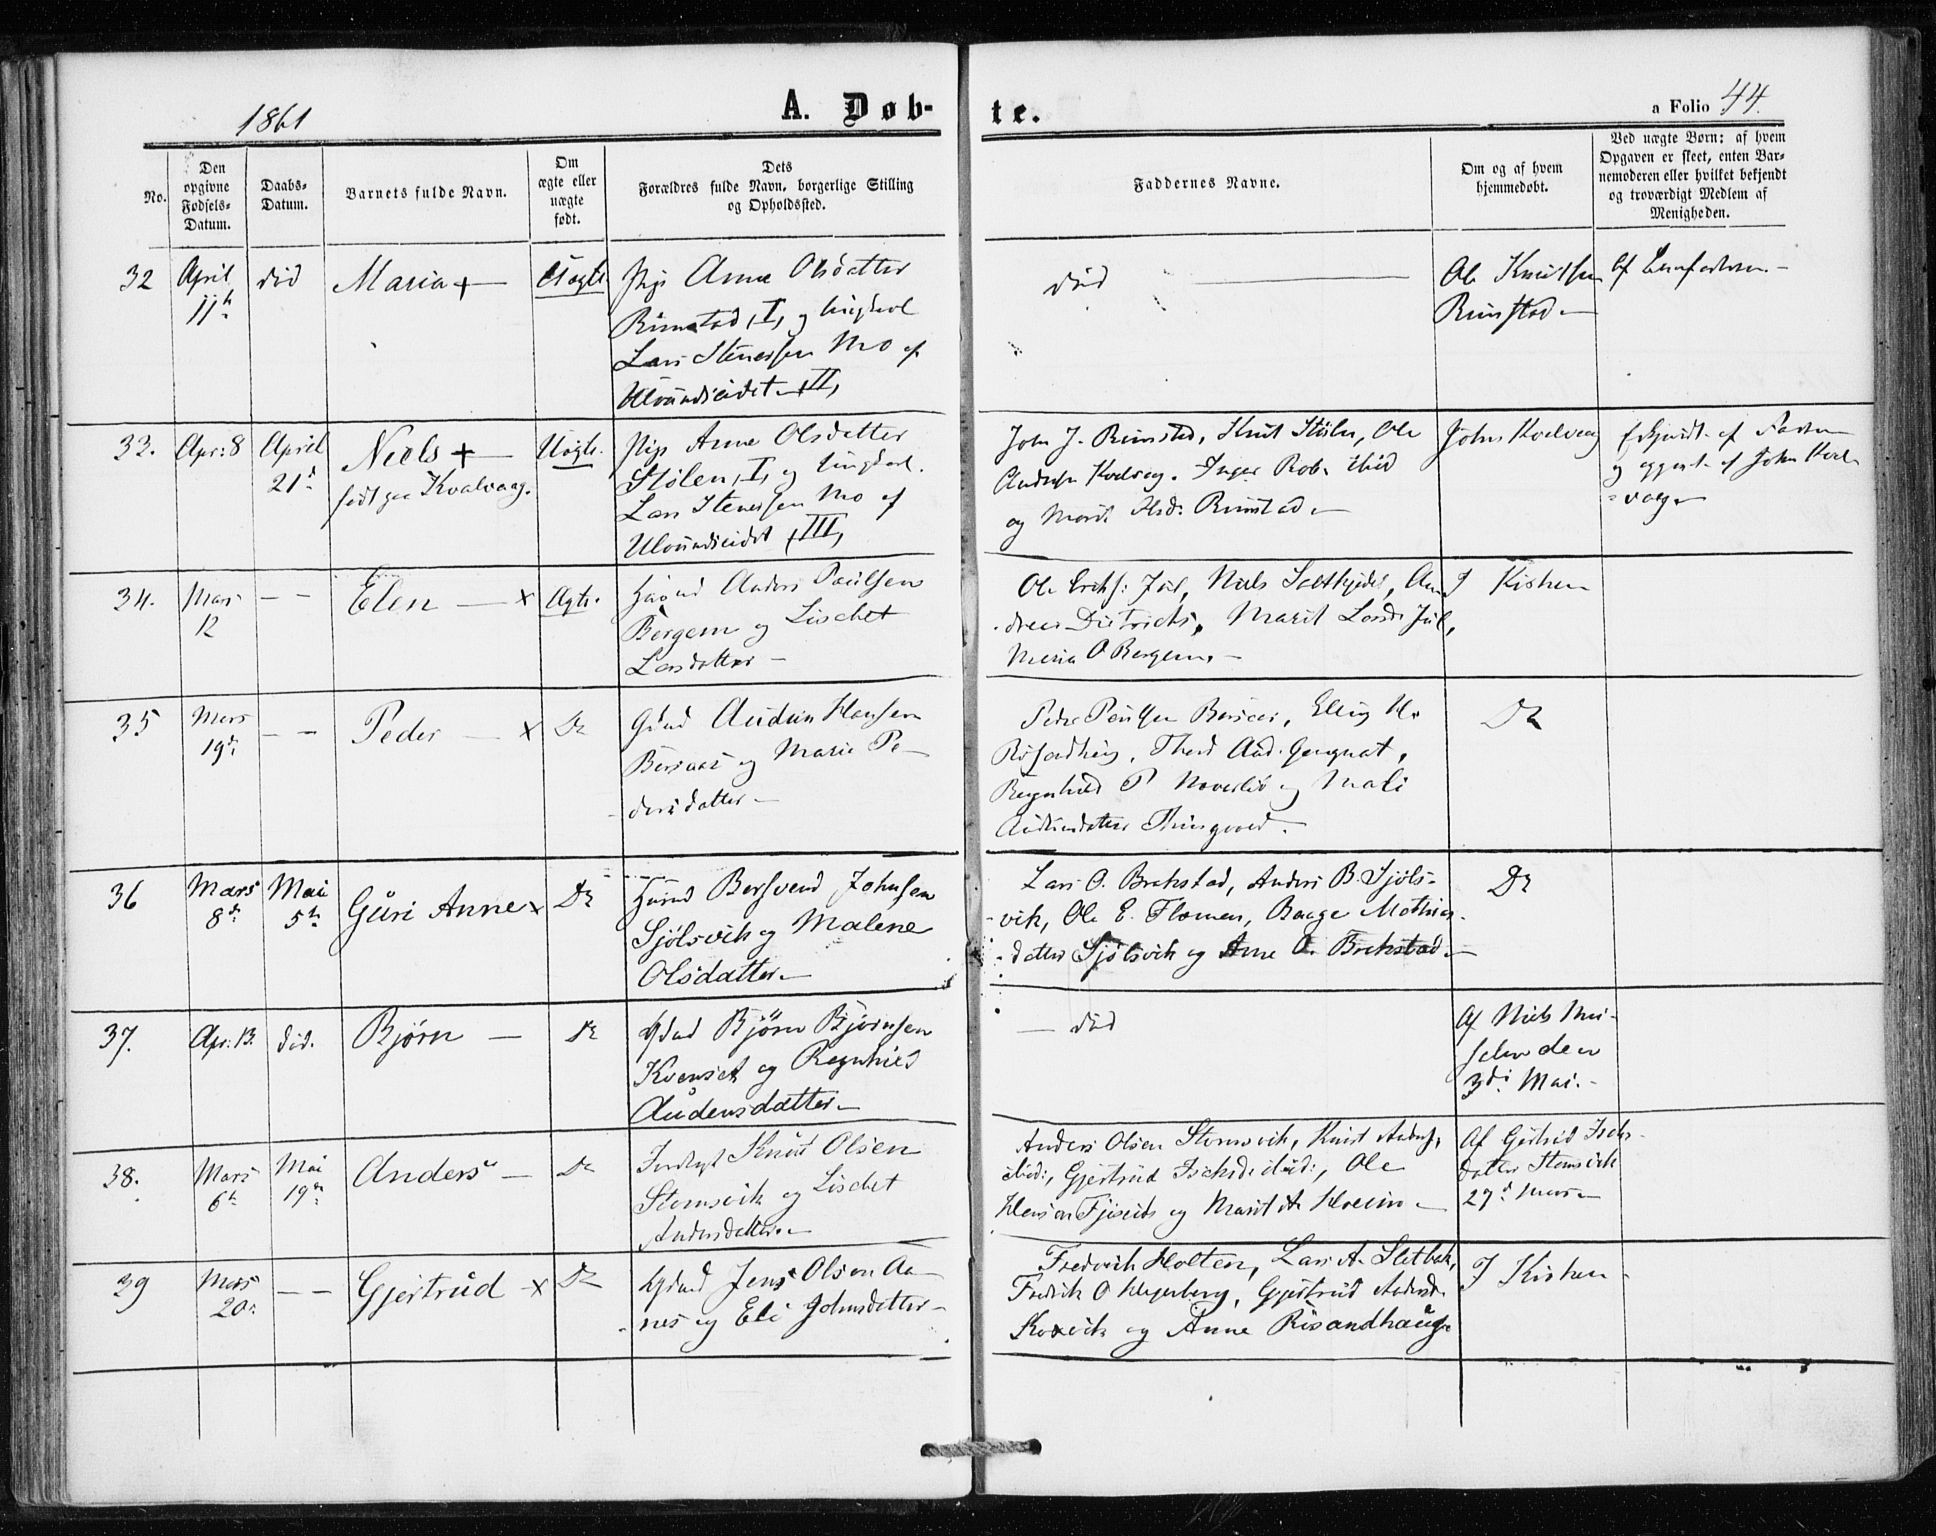 1861
A. Døb-
te.
a Folio 44.
No.
Den
opgivne
Fødsels-
Datum.
Daabs-
Datum.
Barnets fulde Navn.
Om
ægte eller
uægte
født.
Dets
Forældres fulde Navn, borgerlige Stilling
og Opholdssted.
Faddernes Navne.
Om og af hvem
hjemmedøbt.
Ved uægte Børn: af hvem
Opgaven er skeet, enten Bar-
nemoderen eller hvilket bekjendt
og troværdigt Medlem af
Menigheden.
32
April
11te
død
Maria +
Uægte
Pige Anne Olsdatter
Rimstad, I, og Ungkarl
Lars Stenersen Mo af
Ulvundseidet, II,
død
Ole Knutsen
Rimstad
Af
33.
Apr: 8
April
21de
Niels +
født paa Kvalvaag.
Uægte.
Pige Anne Olsdatter
Stølen, I, og Ungkarl
Lars Stenersen Mo af
Ulvundseidet, III,
John J. Rimstad, Knut Stølen, Ole
Andersen Kvalvag. Inger Rob. ibid
og Marit Olsd: Rimstad
John Kvalvaag
af Faderen
og opgivet af John Kval-
vag
34.
Mars
12
— —
Elen — x
Ægte.
Huusmd Anders Paulsen
Bergem og Lisebet
Larsdatter —
Ole Eriks: Jul, Niels Saltkjelds, An-
dreas Dietrichs, Marit Larsd: Jul,
Maria O Bergem. —
I Kirken
35
Mars
19de
— —
Peder — x
Do
Gdmd Audun Hansen
Bersaas og Marie Pe-
dersdatter —
Peder Paulsen Bersaas, Elling H.
Risandhaug,
Ragnhild P. og Mali
Do
36
Mars
8de
Mai
5te
Guri Anne x
Do
Husmd Bersvend Johnsen
Sjølsvik og Malene
Olsdatter —
Lars O. Brekstad, Anders B. Sjøls-
vik, Ole E. Flemmen, Baage Mathias-
datter Sjølsvik og Anne O. Brekstad —
Do
37.
Apr: 13.
død.
Bjørn —
Do
Gdmd Bjørn Bjørnsen
Kvenset og Ragnhild
Audensdatter —
— død
Af Niels
den
3die Mai. —
38.
Mars
6te
Mai
19de
Anders —
Do
Knut Olsen
Stomsvik og Lisebet
Andersdatter —
Anders Olsen Stomsvik, Knut Anders,
ibid:, Gjertrud ibid:, Ole
og Marit A
Af Gjertrud
datter Stomsvik
27de Mars
39
Mars
20de
— —
Gjertrud — x
Do
Gdmd Jens Olsen Aa-
nes og Eli Johnsdatter —
Fredrik Holten, Lars A. Sletbak,
Fredrik O Hegerberg, Gjertrud Andersd:
og Anne Risandhaug.
I Kirken —